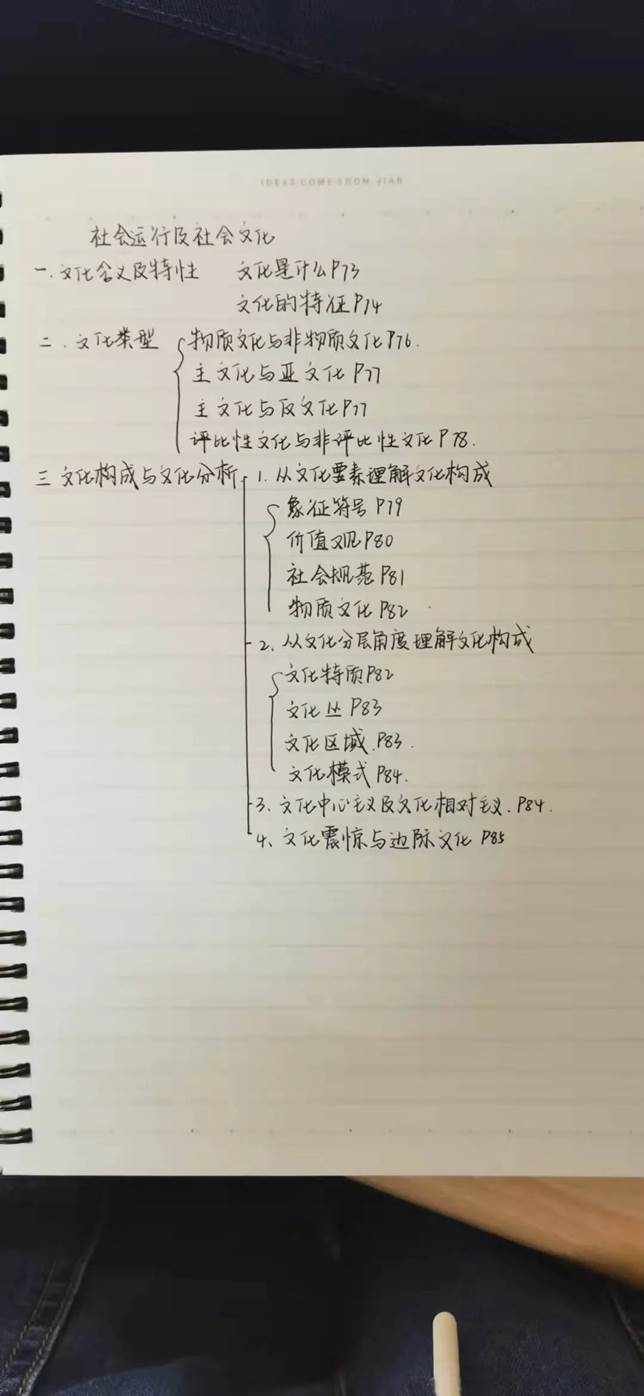 IDEAS COME FROM JIAN
社会运行及社会文化
一.文化含义及特性 文化是什么P73
文化的特征P74
二.文化类型 物质文化与非物质文化P76.
主文化与亚文化P77
主文化与反文化P77
评比性文化与非评比性文化P78.
三 文化构成与文化分析 1.从文化要素理解文化构成
象征符号P79
价值观P80
社会规范P81
物质文化P82
2.从文化分层角度理解文化构成
文化特质P82
文化丛P83
文化区域.P83.
文化模式P84.
3、文化中心主义及文化相对主义.P84.
4、文化震惊与边际文化P85